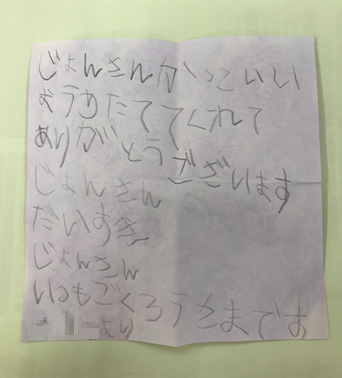 じょんさんかっこいい
おうちたててくれて
ありがとうございます
じょんさん
だいすき
じょんさん
いつもごくろうさまです
より